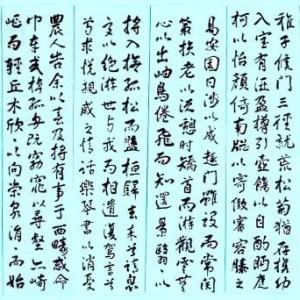 稚子候門三徑就荒松菊猶存携幼
入室有酒盈樽引壺觴以自酌眄庭
柯以怡顏倚南窗以寄傲審容膝之
易安園日涉以成趣門雖設而常關
策扶老以流憩時矯首而游觀雲無
心以出岫鳥倦飛而知還景翳翳以
將入撫孤松而盤桓歸去來兮請息
交以絕游世與我而相遺復駕言兮
焉求悅親戚之情話樂琴書以消憂
農人告余以春及將有事于西疇或命
巾車或棹孤舟既窈窕以尋壑亦崎
嶇而經丘木欣欣以向榮泉涓涓而始